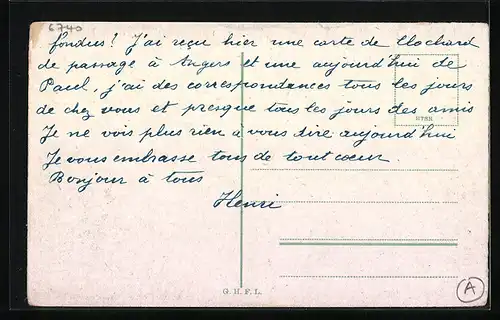 6740
fondus! J'ai reçu hier une carte de Clochard
de passage à Angers et une aujourd'hui de
Paul, j'ai des correspondances tous les jours
de chez vous et presque tous les jours des amis
Je ne vois plus rien à vous dire aujourd'hui
Je vous embrasse tous de tout cœur
Bonjour à tous
Henri
G. H. F. L.
A